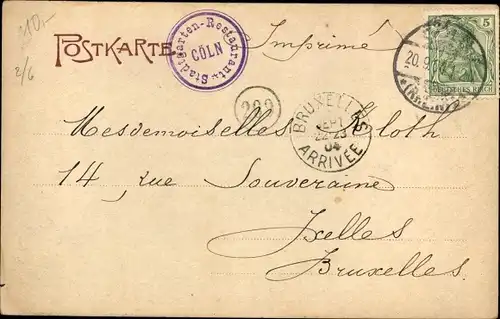 10.-
2/6
POSTKARTE
Stadtgarten-Restaurant
CÖLN
Imprimé
5
DEUTSCHES REICH
20.9.04
(RHEIN)
209
BRUXELLES
SEPT
22-23
04
ARRIVÉE
Mesdemoiselles Kloth
14, rue Souveraine
Ixelles
Bruxelles